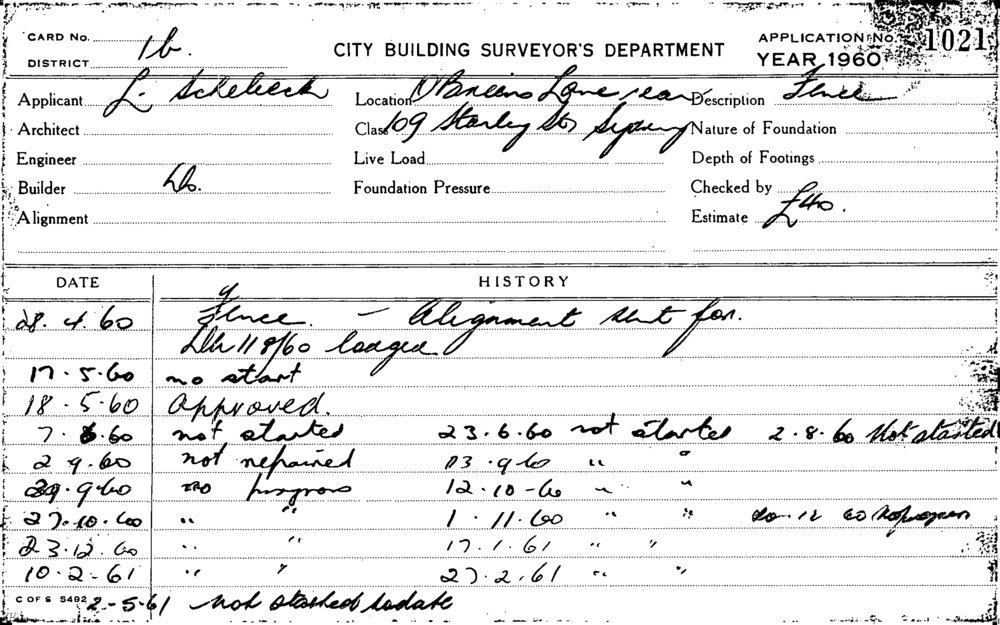 CARD No.
DISTRICT 1b.
CITY BUILDING SURVEYOR'S DEPARTMENT
APPLICATION No. 1021
YEAR 1960
Applicant L. Schebeck Location O'Briens Lane rear Description Fence
Architect Class 109 Stanley St Sydney Nature of Foundation
Engineer Live Load Depth of Footings
Builder Do. Foundation Pressure Checked by
Alignment Estimate £40.
DATE HISTORY
28.4.60 Fence. – Alignment sent for.
118/60 lodged
17.5.60 no start
18.5.60 Approved.
7.6.60 not started 23.6.60 not started 2.8.60 Not started
2 9.60 not repaired 13.9.60 " "
29.9.60 no progress 12.10-60 " "
27.10.60 " " 1.11.60 " " 20.12 60 No progress
23.12.60 " " 17.1.61 " "
10.2-61 " " 27.2.61 " "
C OF S 5492 2-5-61 not started to date